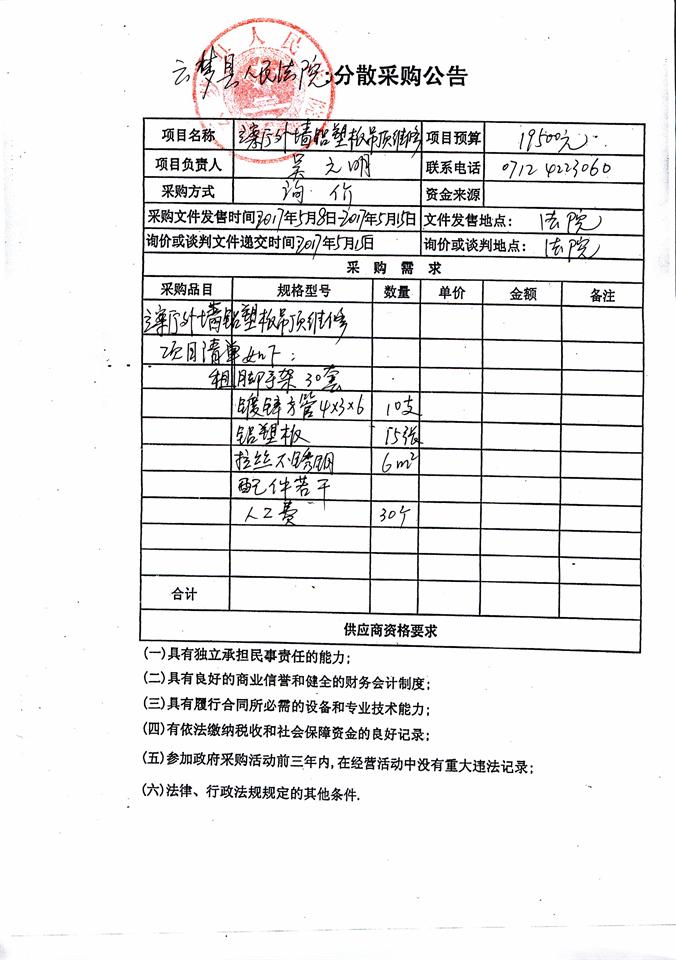 云梦县人民法院:分散采购公告
项目名称 审判庭外墙铝塑板吊顶维修 项目预算 19500元
项目负责人 吴元明 联系电话 0712 4223060
采购方式 询价 资金来源
采购文件发售时间 2017年5月8日-2017年5月15日 文件发售地点: 法院
询价或谈判文件递交时间 2017年5月15日 询价或谈判地点: 法院
采购需求
采购品目 规格型号 数量 单价 金额 备注
外墙铝塑板吊顶维修
项目清单如下:
租脚手架30套
镀锌方管4x3x6 10支
铝塑板 15张
拉丝不锈钢 6m²
配件若干
人工费 30个
合计
供应商资格要求
(一)具有独立承担民事责任的能力;
(二)具有良好的商业信誉和健全的财务会计制度;
(三)具有履行合同所必需的设备和专业技术能力;
(四)有依法缴纳税收和社会保障资金的良好记录;
(五)参加政府采购活动前三年内,在经营活动中没有重大违法记录;
(六)法律、行政法规规定的其他条件.